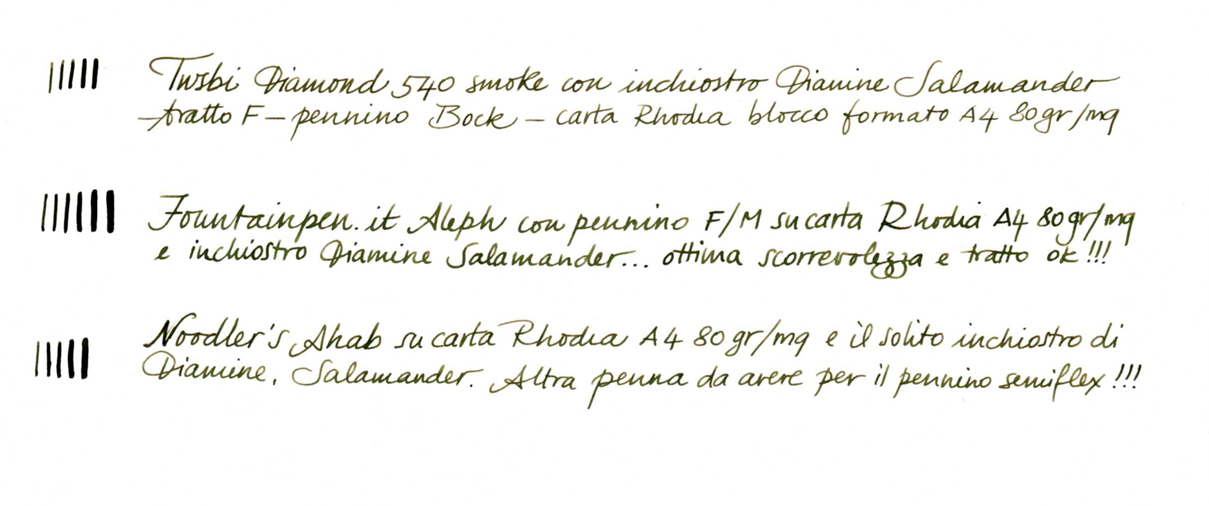 Twsbi Diamond 540 smoke con inchiostro Diamine Salamander
tratto F – pennino Bock – carta Rhodia blocco formato A4 80gr/mq
Fountainpen.it Aleph con pennino F/M su carta Rhodia A4 80gr/mq
e inchiostro Diamine Salamander... ottima scorrevolezza e tratto ok!!!
Noodler's Ahab su carta Rhodia A4 80gr/mq e il solito inchiostro di
Diamine, Salamander. Altra penna da avere per il pennino semiflex!!!